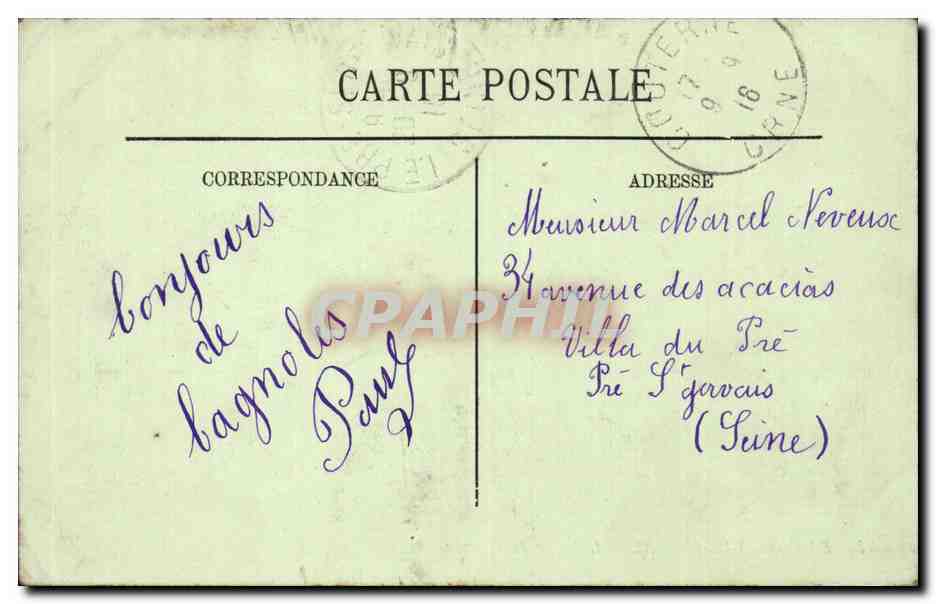 CARTE POSTALE
COUTERNE
17 9
9 16
ORNE
LE PRE
CORRESPONDANCE
ADRESSE
bonjours
de
bagnoles
Paul
Monsieur Marcel Neveux
34 avenue des acacias
Villa du Pré
Pré St gervais
(Seine)
CPAPHIL